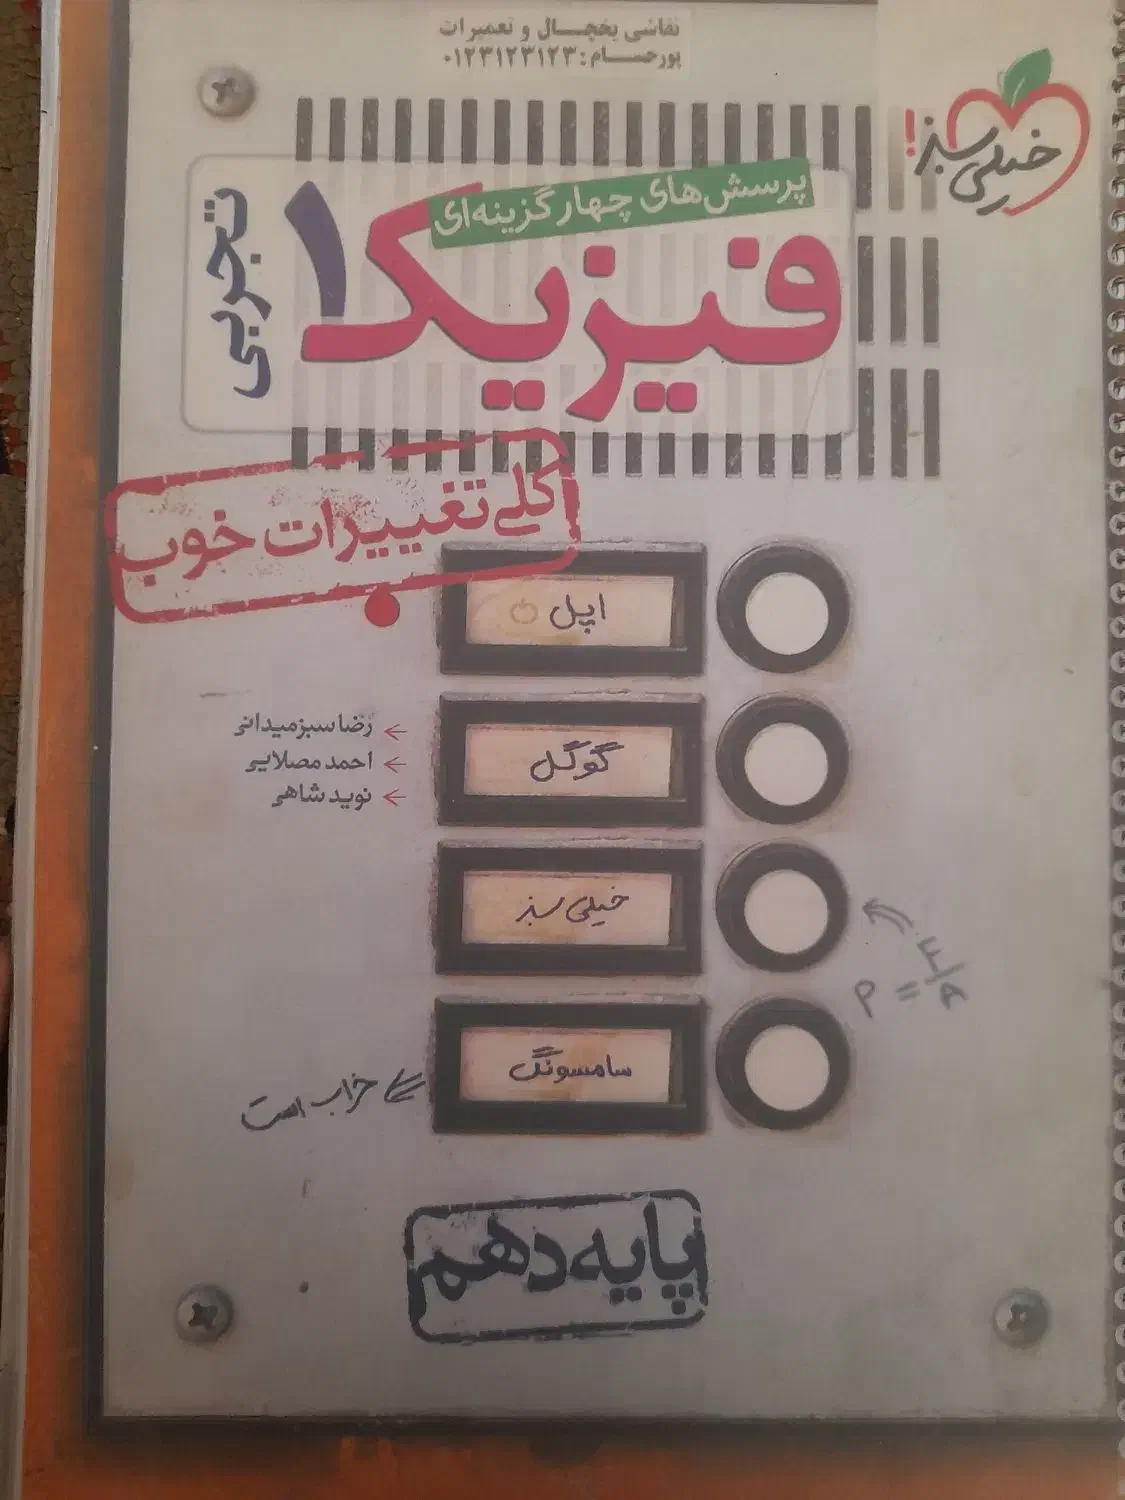 نقاشی یخچال و تعمیرات
پورحسام: ۰۱۲۳۱۲۳۱۲۳
خیلی سبز!
پرسش‌های چهارگزینه‌ای
فیزیک ۱
تجربی
کلی تغییرات خوب
اپل
رضا سبزمیدانی
احمد مصلایی
نوید شاهی
گوگل
خیلی سبز
P = F/A
سامسونگ
خراب است
پایه دهم